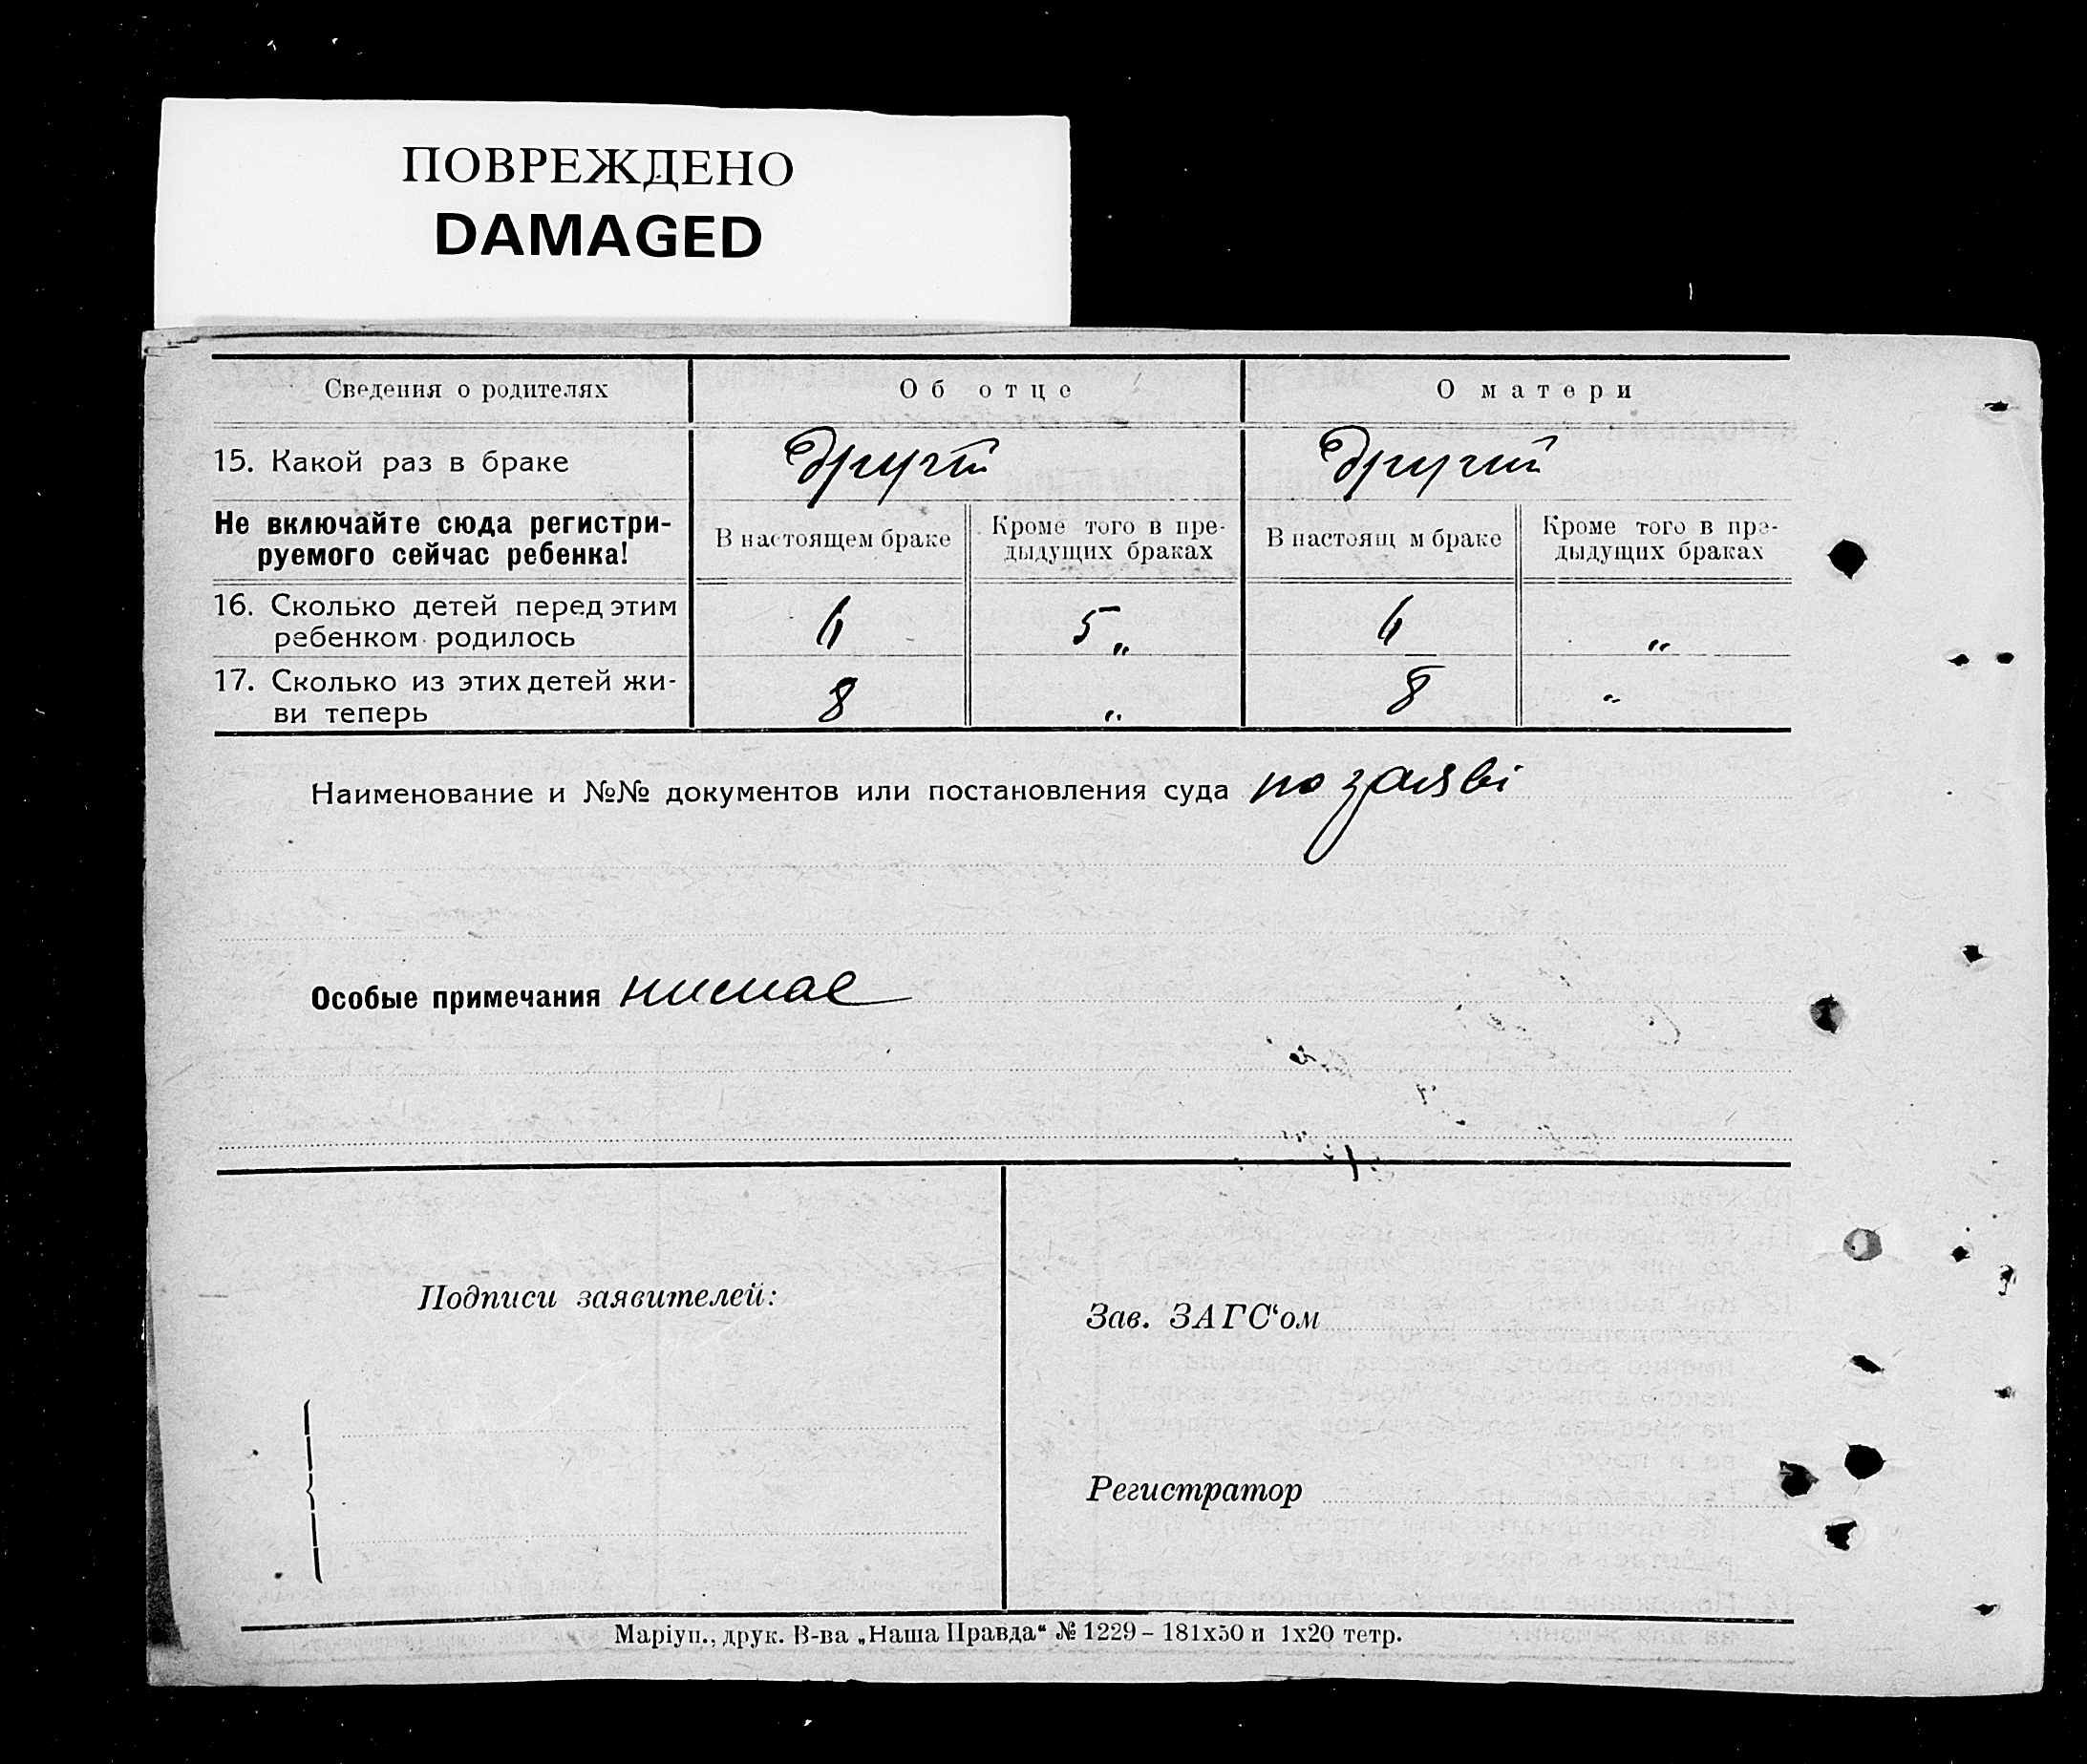 ПОВРЕЖДЕНО
DAMAGED
Сведения о родителях
Об отце
О матери
15. Какой раз в браке
другій
другий
Не включайте сюда регистри-
руемого сейчас ребенка!
В настоящем браке
Кроме того в пре-
дыдущих браках
В настоящ м браке
Кроме того в пре-
дыдущих браках
16. Сколько детей перед этим
ребенком родилось
6
5 „
6
„
17. Сколько из этих детей жи-
ви теперь
8
„
8
„
Наименование и №№ документов или постановления суда по заяві
Особые примечания нимае
Подписи заявителей:
Зав. ЗАГС‘ом
Регистратор
Маріуп., друк. В-ва „Наша Правда“ № 1229 – 181х50 и 1х20 тетр.